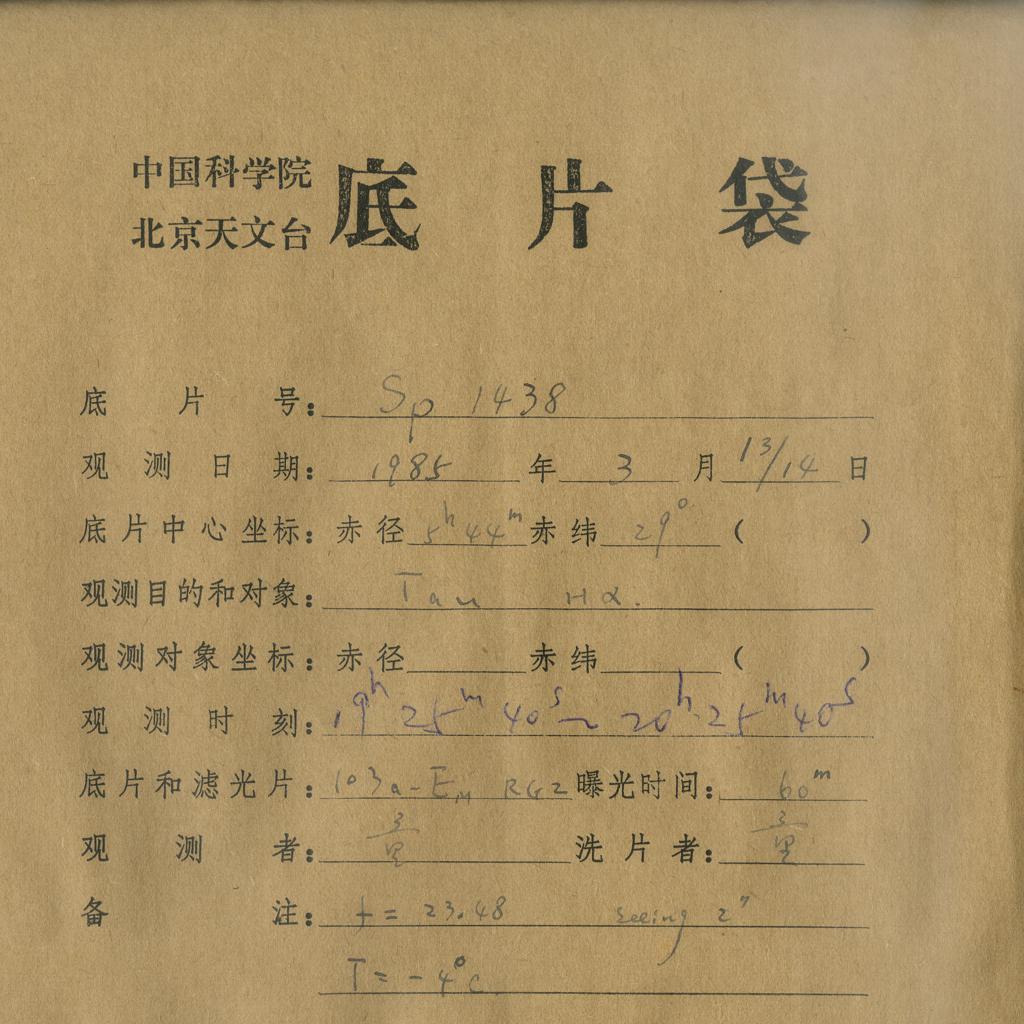 中国科学院
北京天文台
底片袋
底片号: Sp 1438
观测日期: 1985年 3月 13/14日
底片中心坐标: 赤径 5h 44m 赤纬 29° ( )
观测目的和对象: Tau Hα.
观测对象坐标: 赤径 赤纬 ( )
观测时刻: 19h 25m 40s ~ 20h 25m 40s
底片和滤光片: 103a-E RG2 曝光时间: 60m
观测者: 洗片者:
备注: f = 23.48 seeing 2"
T = -4°C